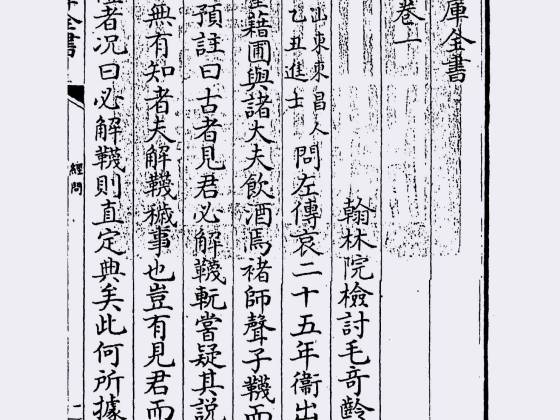 庫全書
卷十
翰林院檢討毛奇齡
山東東昌人
乙丑進士
問左傳哀二十五年衞出
籍圃與諸大夫飲酒焉褚師聲子韤而
預註曰古者見君必解韤輒嘗疑其說
無有知者夫解韤穢事也豈有見君而
者况曰必解韤則直定典矣此何所據
全書
經問